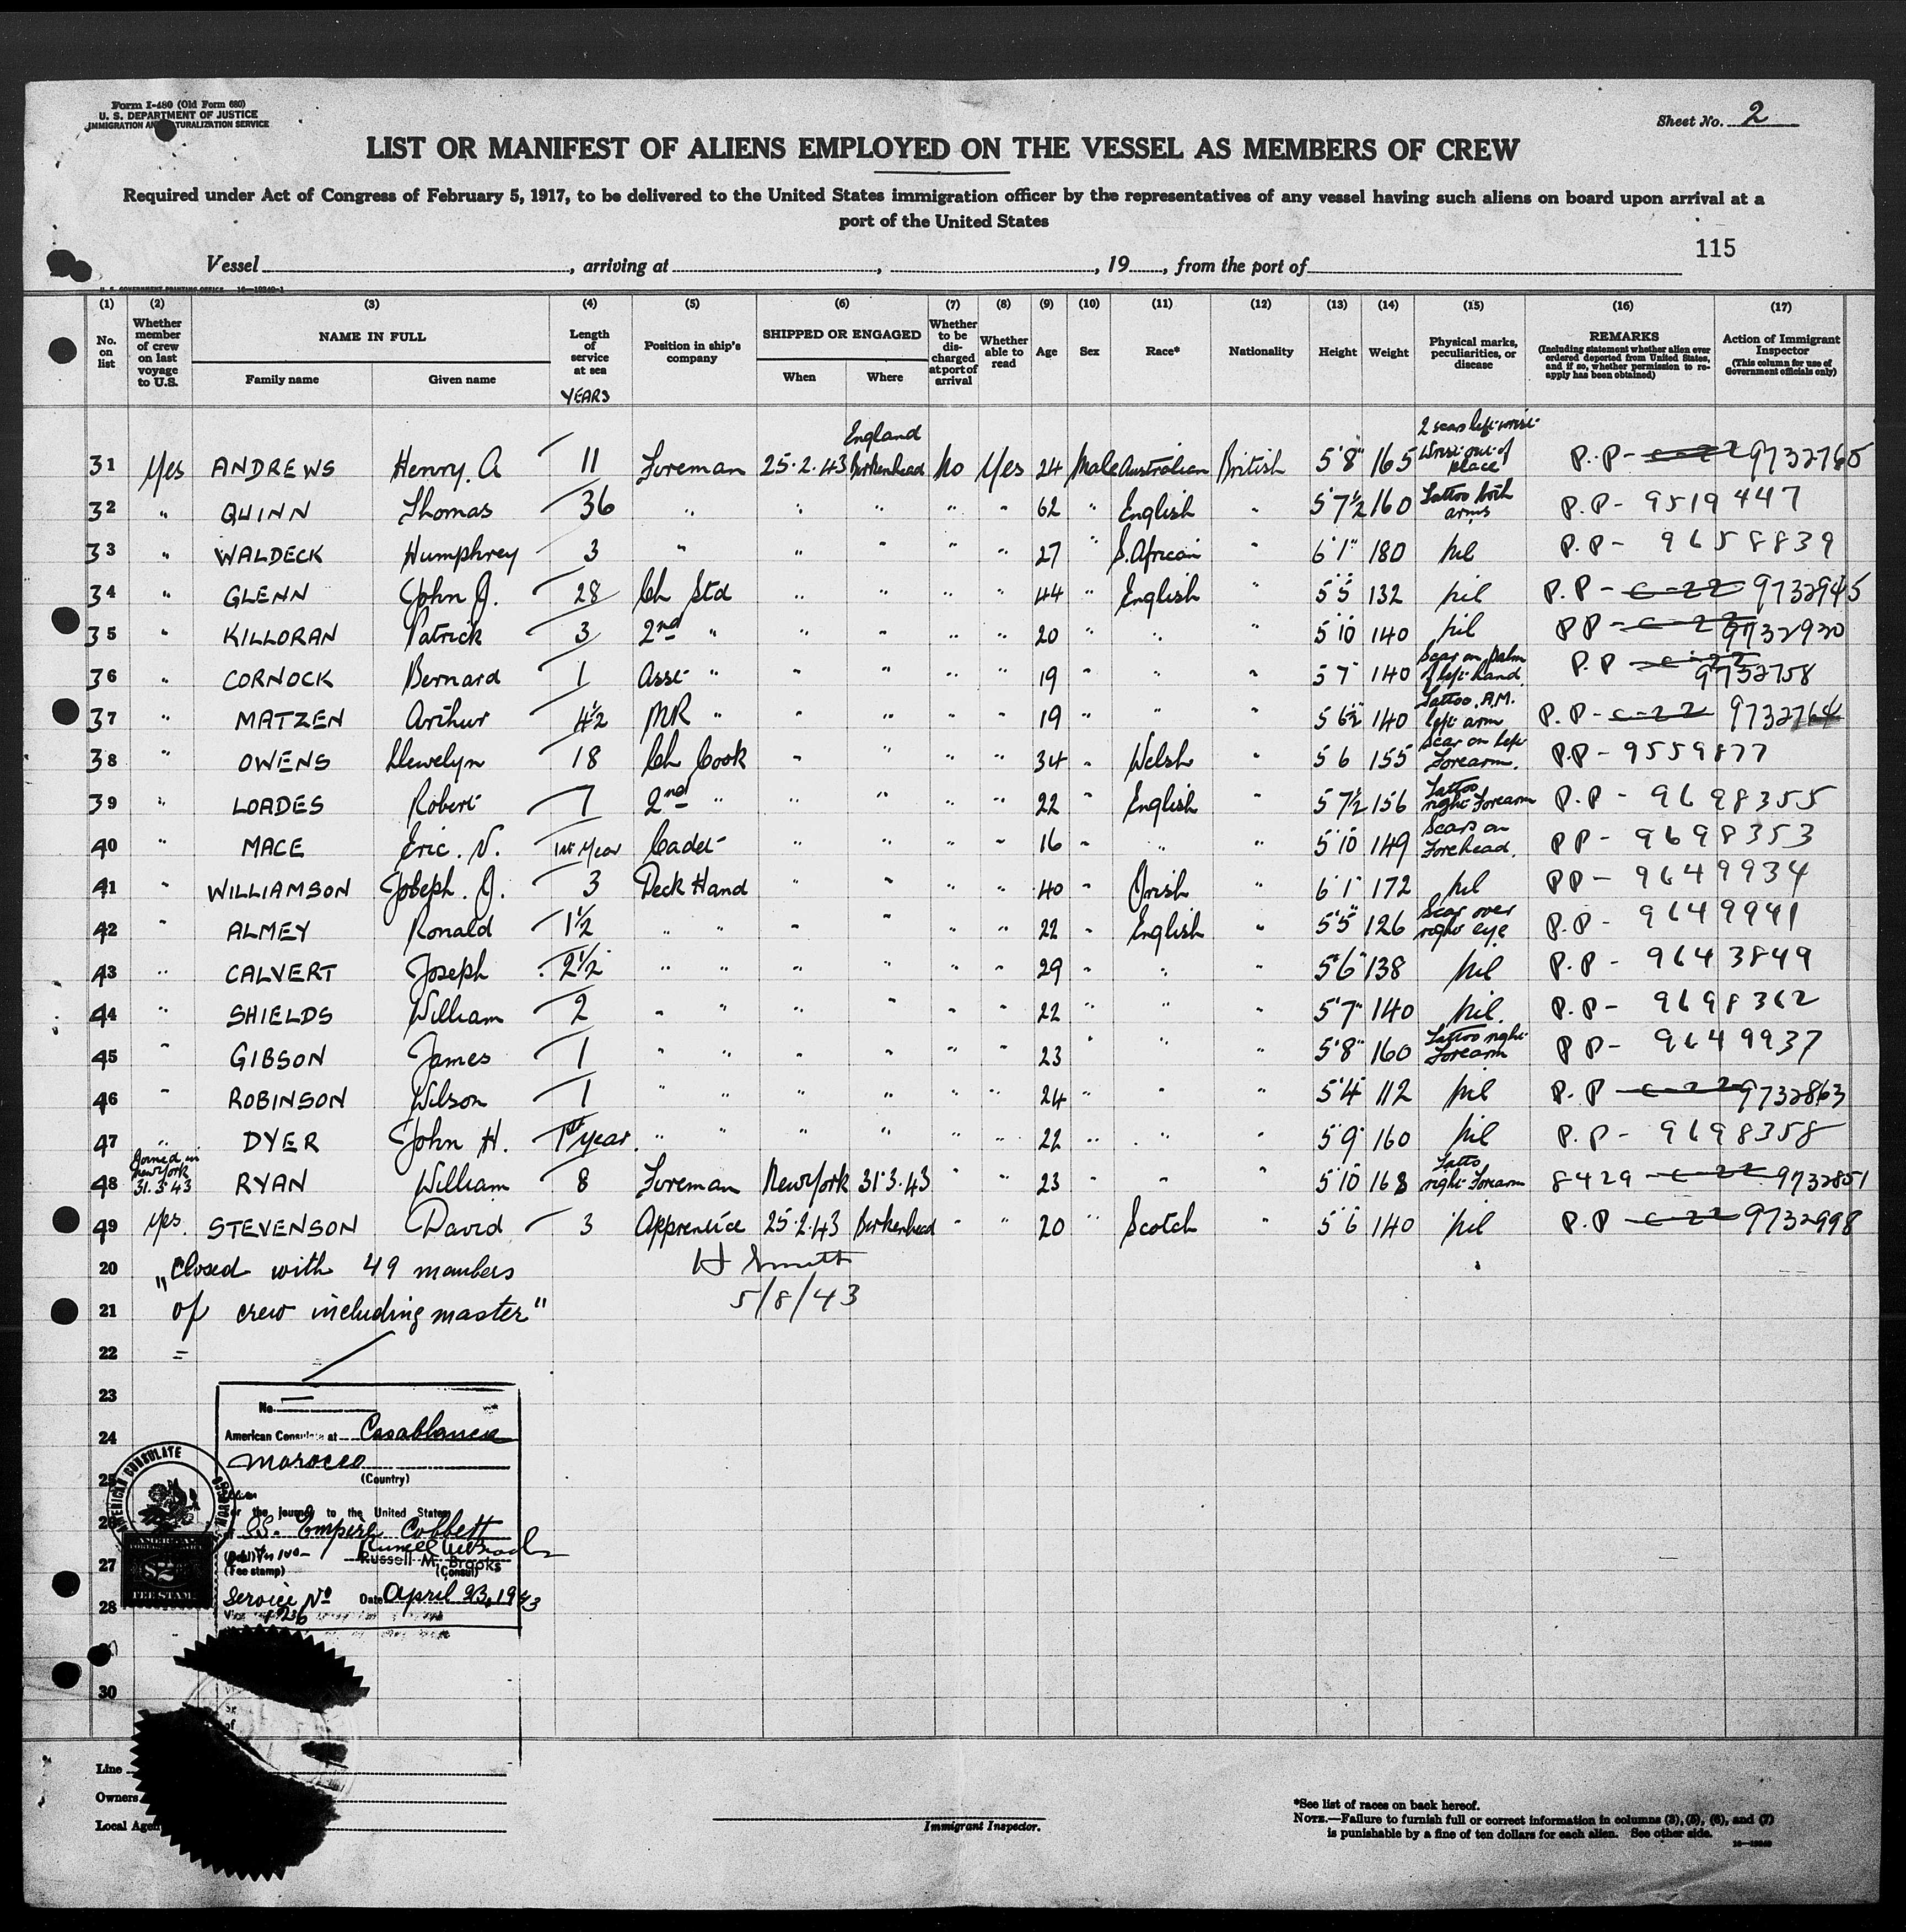 Form I-480 (Old Form 680)
U. S. DEPARTMENT OF JUSTICE
IMMIGRATION AND NATURALIZATION SERVICE
Sheet No. 2
LIST OR MANIFEST OF ALIENS EMPLOYED ON THE VESSEL AS MEMBERS OF CREW
Required under Act of Congress of February 5, 1917, to be delivered to the United States immigration officer by the representatives of any vessel having such aliens on board upon arrival at a
port of the United States
115
Vessel, arriving at, , 19, from the port of
U. S. GOVERNMENT PRINTING OFFICE 16—19240-1
(1) (2) (3) (4) (5) (6) (7) (8) (9) (10) (11) (12) (13) (14) (15) (16) (17)
No. on list Whether member of crew on last voyage to U.S. NAME IN FULL Family name Given name Length of service at sea YEARS Position in ship's company SHIPPED OR ENGAGED When Where Whether to be discharged at port of arrival Whether able to read Age Sex Race* Nationality Height Weight Physical marks, peculiarities, or disease REMARKS (Including statement whether alien ever ordered deported from United States, and if so, whether permission to reapply has been obtained) Action of Immigrant Inspector (This column for use of Government officials only)
England 2 scars left wrist
31 Yes ANDREWS Henry. A 11 Foreman 25.2.43 Birkenhead No Yes 24 Male Australian British 5'8" 165 Wrist out of place P.P- C-22 9732765
32 " QUINN Thomas 36 " " " " " 62 " English " 5'7½ 160 Tattoo both arms P.P- 9519447
33 " WALDECK Humphrey 3 " " " " " 27 " S.African " 6'1" 180 Nil P.P- 9658839
34 " GLENN John J. 28 Ch Std " " " " 44 " English " 5'5" 132 Nil P.P- C-22 9732945
35 " KILLORAN Patrick 3 2nd " " " " " 20 " " " 5 10 140 Nil PP- C-22 9732920
36 " CORNOCK Bernard 1 Asst " " " " " 19 " " " 5 7 140 Scar on palm of left hand P.P C-22 9732758
37 " MATZEN Arthur 4½ MR " " " " " 19 " " " 5 6½ 140 Tattoo. A.M. left arm P.P- C-22 9732764
38 " OWENS Llewelyn 18 Ch Cook " " " " 34 " Welsh " 5 6 155 Scar on left Forearm. P.P- 9559877
39 " LOADES Robert 7 2nd " " " " " 22 " English " 5 7½ 156 Tattoo right Forearm P.P- 9698355
40 " MACE Eric. N. 1st Year Cadet " " " " 16 " " " 5'10 149 Scars on Forehead. PP- 9698353
41 " WILLIAMSON Joseph. J. 3 Deck Hand " " " " 40 " Irish " 6'1" 172 Nil PP- 9649934
42 " ALMEY Ronald 1½ " " " " " " 22 " English " 5'5" 126 Scar over right eye P.P- 9649941
43 " CALVERT Joseph 2½ " " " " " " 29 " " " 5'6" 138 Nil P.P- 9643849
44 " SHIELDS William 2 " " " " " " 22 " " " 5'7" 140 Nil. P.P- 9698362
45 " GIBSON James 1 " " " " " " 23 " " " 5'8" 160 Tattoo right Forearm PP- 9649937
46 " ROBINSON Wilson 1 " " " " " " 24 " " " 5'4" 112 Nil P.P C-22 9732863
47 " DYER John H. 1st year. " " " " " " 22 " " " 5 9 160 Nil P.P- 9698358
48 Joined in New York 31.3.43 RYAN William 8 Foreman New York 31.3.43 " " 23 " " " 5'10 168 Tatto right Forearm 8429 C-22 9732851
49 Yes. STEVENSON David 3 Apprentice 25.2.43 Birkenhead " " 20 " Scotch " 5'6 140 Nil P.P C-22 9732998
20 "Closed with 49 members H Smith
21 of crew including master" 5/8/43
22
23
No.
24 American Consulate at Casablanca
Morocco
25 (Country)
AMERICAN CONSULATE
for the journey to the United States
26 SS. Empire Cobbett
Russell M. Brooks
27 (Consul)
(Fee stamp)
$2
FEE STAMP
Service No Date April 23, 1943
28 1236
30
Line
Owners
Local Agen
Immigrant Inspector.
*See list of races on back hereof.
NOTE.—Failure to furnish full or correct information in columns (3), (5), (6), and (7)
is punishable by a fine of ten dollars for each alien. See other side.